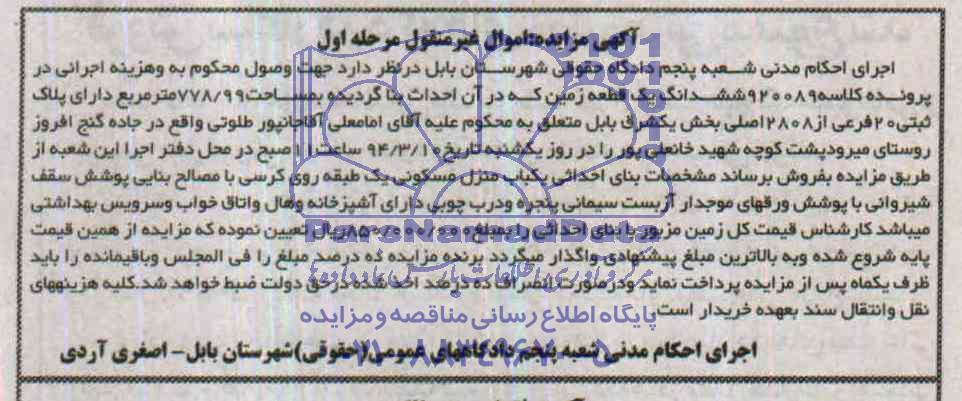 آگهی مزایده:اموال غیرمنقول مرحله اول
اجرای احکام مدنی شعبه پنجم دادگاه حقوقی شهرستان بابل درنظر دارد جهت وصول محکوم به وهزینه اجرائی در
پرونده کلاسه۹۲۰۰۸۹ششدانگ یک قطعه زمین که در آن احداث بنا گردیده بمساحت۷۷۸/۹۹مترمربع دارای پلاک
ثبتی۲۰فرعی از۲۸۰۸اصلی بخش یکشرق بابل متعلق به محکوم علیه آقای امامعلی آقاجانپور طلوتی واقع در جاده گنج افروز
روستای میرودپشت کوچه شهید خانعلی پور را در روز یکشنبه تاریخ۹۴/۳/۱۰ ساعت۱۱صبح در محل دفتر اجرا این شعبه از
طریق مزایده بفروش برساند مشخصات بنای احداثی یکباب منزل مسکونی یک طبقه روی کرسی با مصالح بنایی پوشش سقف
شیروانی با پوشش ورقهای موجدار آزبست سیمانی پنجره ودرب چوبی دارای آشپزخانه وهال واتاق خواب وسرویس بهداشتی
میباشد کارشناس قیمت کل زمین مزبور با بنای احداثی را بمبلغ۸۵۰/۰۰۰/۰۰۰ریال تعیین نموده که مزایده از همین قیمت
پایه شروع شده وبه بالاترین مبلغ پیشنهادی واگذار میگردد برنده مزایده ده درصد مبلغ را فی المجلس وباقیمانده را باید
ظرف یکماه پس از مزایده پرداخت نماید ودرصورت انصراف ده درصد اخذ شده درحق دولت ضبط خواهد شد.کلیه هزینههای
نقل وانتقال سند بعهده خریدار است.
اجرای احکام مدنی شعبه پنجم دادگاههای عمومی(حقوقی)شهرستان بابل- اصغری آردی
ParsNamadData
پایگاه اطلاع رسانی مناقصه ومزایده